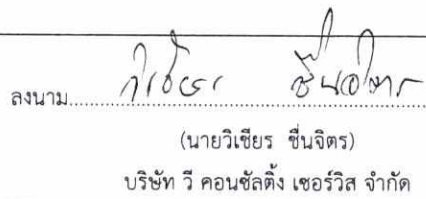 ลงนาม........วิเชียร ชื่นจิตร
(นายวิเชียร ชื่นจิตร)
บริษัท วี คอนซัลติ้ง เซอร์วิส จำกัด